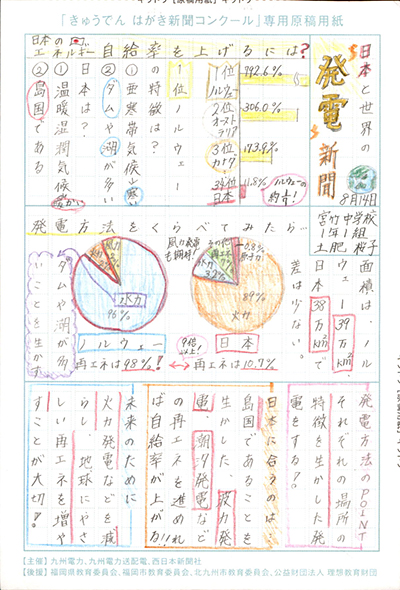 「きゅうでん はがき新聞コンクール」専用原稿用紙
日本と世界の
発電新聞
8月14日
宮竹中学校
1年1組
土肥 桜子
日本の
エネルギー自給率を上げるには?
1位
ノルウェー
792.6%
2位
オーストラリア
306.0%
3位
カナダ
173.9%
日本
11.8%
ノルウェーの
約
1位ノルウェー
の特徴は?
①亜寒帯気候
②ダムや湖が多い
日本は?
①温暖湿潤気候
②島国である
発電方法をくらべてみたら…
面積は、ノル
ウェー39万km²
日本38万km²で
差は少ない。
水力
96%
ノルウェー
再エネは98%!!
0.8%
原子力
89%
火力
日本
再エネは10.7%
9倍
以上!
ダムや湖が多
いことを生かす
発電方法のPOINT
それぞれの場所の
特徴を生かした発
電をする?
日本に合うのは?
島国であることを
生かした、波力発
電、潮汐発電など
の再エネを進めれ
ば自給率が上がる!!
未来のために
火力発電などを減
らし、地球にやさ
しい再エネを増や
すことが大切?
【主催】九州電力、九州電力送配電、西日本新聞社
【後援】福岡県教育委員会、福岡市教育委員会、北九州市教育委員会、公益財団法人 理想教育財団